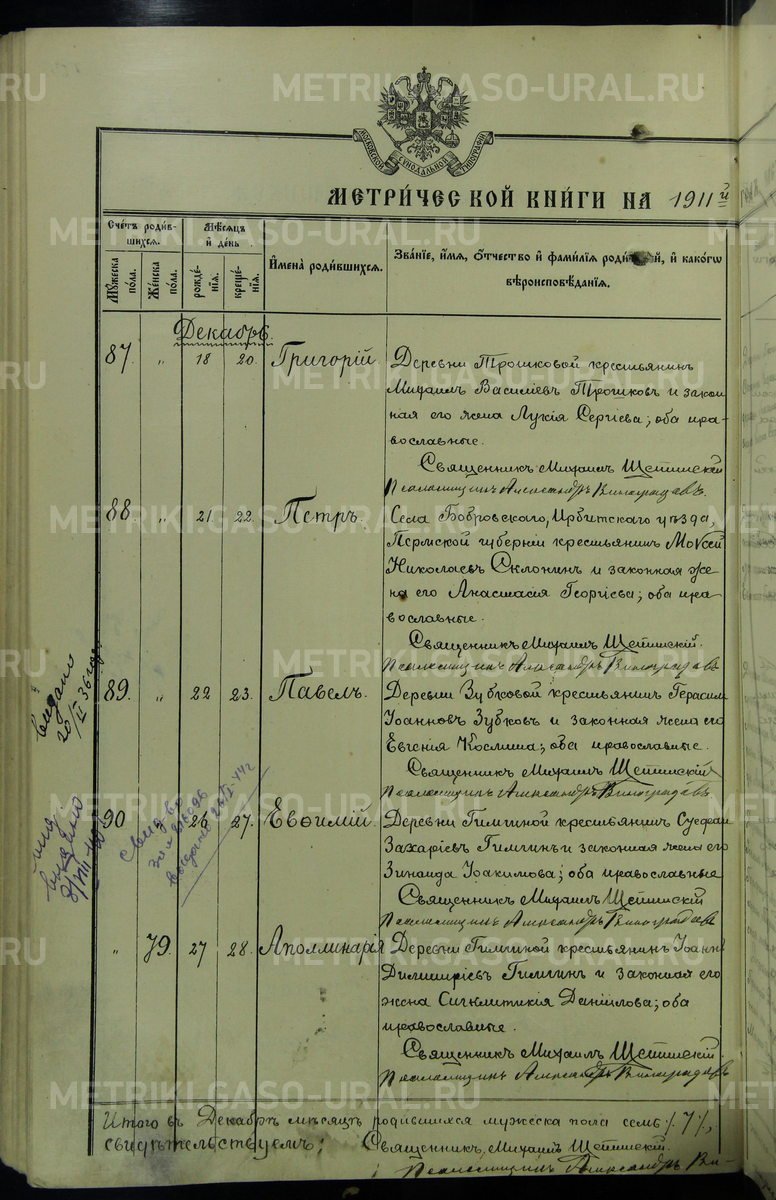 METRIKI.GASO-URAL.RU
МОСКОВСКОЙ СѴНОДАЛЬНОЙ ТИПОГРАФІИ
МЕТРИ́ЧЕСКОЙ КНИ́ГИ НА 1911 й
Сче́тъ роди́в-
шихся.
Мꙋ́жеска по́ла.
Же́нска по́ла.
Мѣ́сяцъ
и҆ де́нь
рожде́нїя.
креще́нїя.
И҆мена̀ роди́вшихся.
Зва́нїе, и҆́мѧ, ѻ҆́тчество и҆ фами́лїя роди й, и҆ како́гѡ
вѣроисповѣ́данїя.
Декабрь.
87. „ 18 20. Григорій.
Деревни Трошковой крестьянинъ
Михаилъ Василіевъ Трошковъ и закон
ная его жена Лукія Сергіева; оба пра-
вославные.
Священникъ Михаилъ Щепинскій
Псаломщикъ Александръ Виноградовъ.
88. „ 21 22. Петръ.
Села Бобровскаго, Ирбитскаго уѣзда,
Пермской губерніи крестьянинъ Моѵсей
Николаевъ и законная же
на его Анастасія Георгіева; оба пра
вославные.
Священникъ Михаилъ Щепинскій.
Псаломщикъ Александръ Виноградовъ
89. „ 22 23. Павелъ.
Деревни Зубковой крестьянинъ Герасимъ
Іоанновъ Зубковъ и законная жена его
Евгенія Космина; оба православные.
Священникъ Михаилъ Щепинскій
Псаломщикъ Александръ Виноградовъ
Выдано
20/II 36 года
90 26 27. Евѳимій.
Деревни Гилгиной крестьянинъ Стефанъ
Захаріевъ Гилгинъ и законная жена его
Зинаида Іоакимова; оба православные
Священникъ Михаилъ Щепинскій
Псаломщикъ Александръ Виноградовъ
Выдано
Свид-во
„ 79. 27 28. Аполлинарія
Деревни Гилгиной крестьянинъ Іоаннъ
Димитріевъ Гилгинъ и законная его
жена Сигклитикія Даніилова; оба
православные.
Священникъ Михаилъ Щепинскій.
Псаломщикъ Александръ Виноградовъ
Итого въ Декабрѣ мѣсяцѣ родившихся мужеска пола семь /7/,
свидѣтельствуемъ: Священникъ Михаилъ Щепинскій.
Псаломщикъ Александръ Ви-